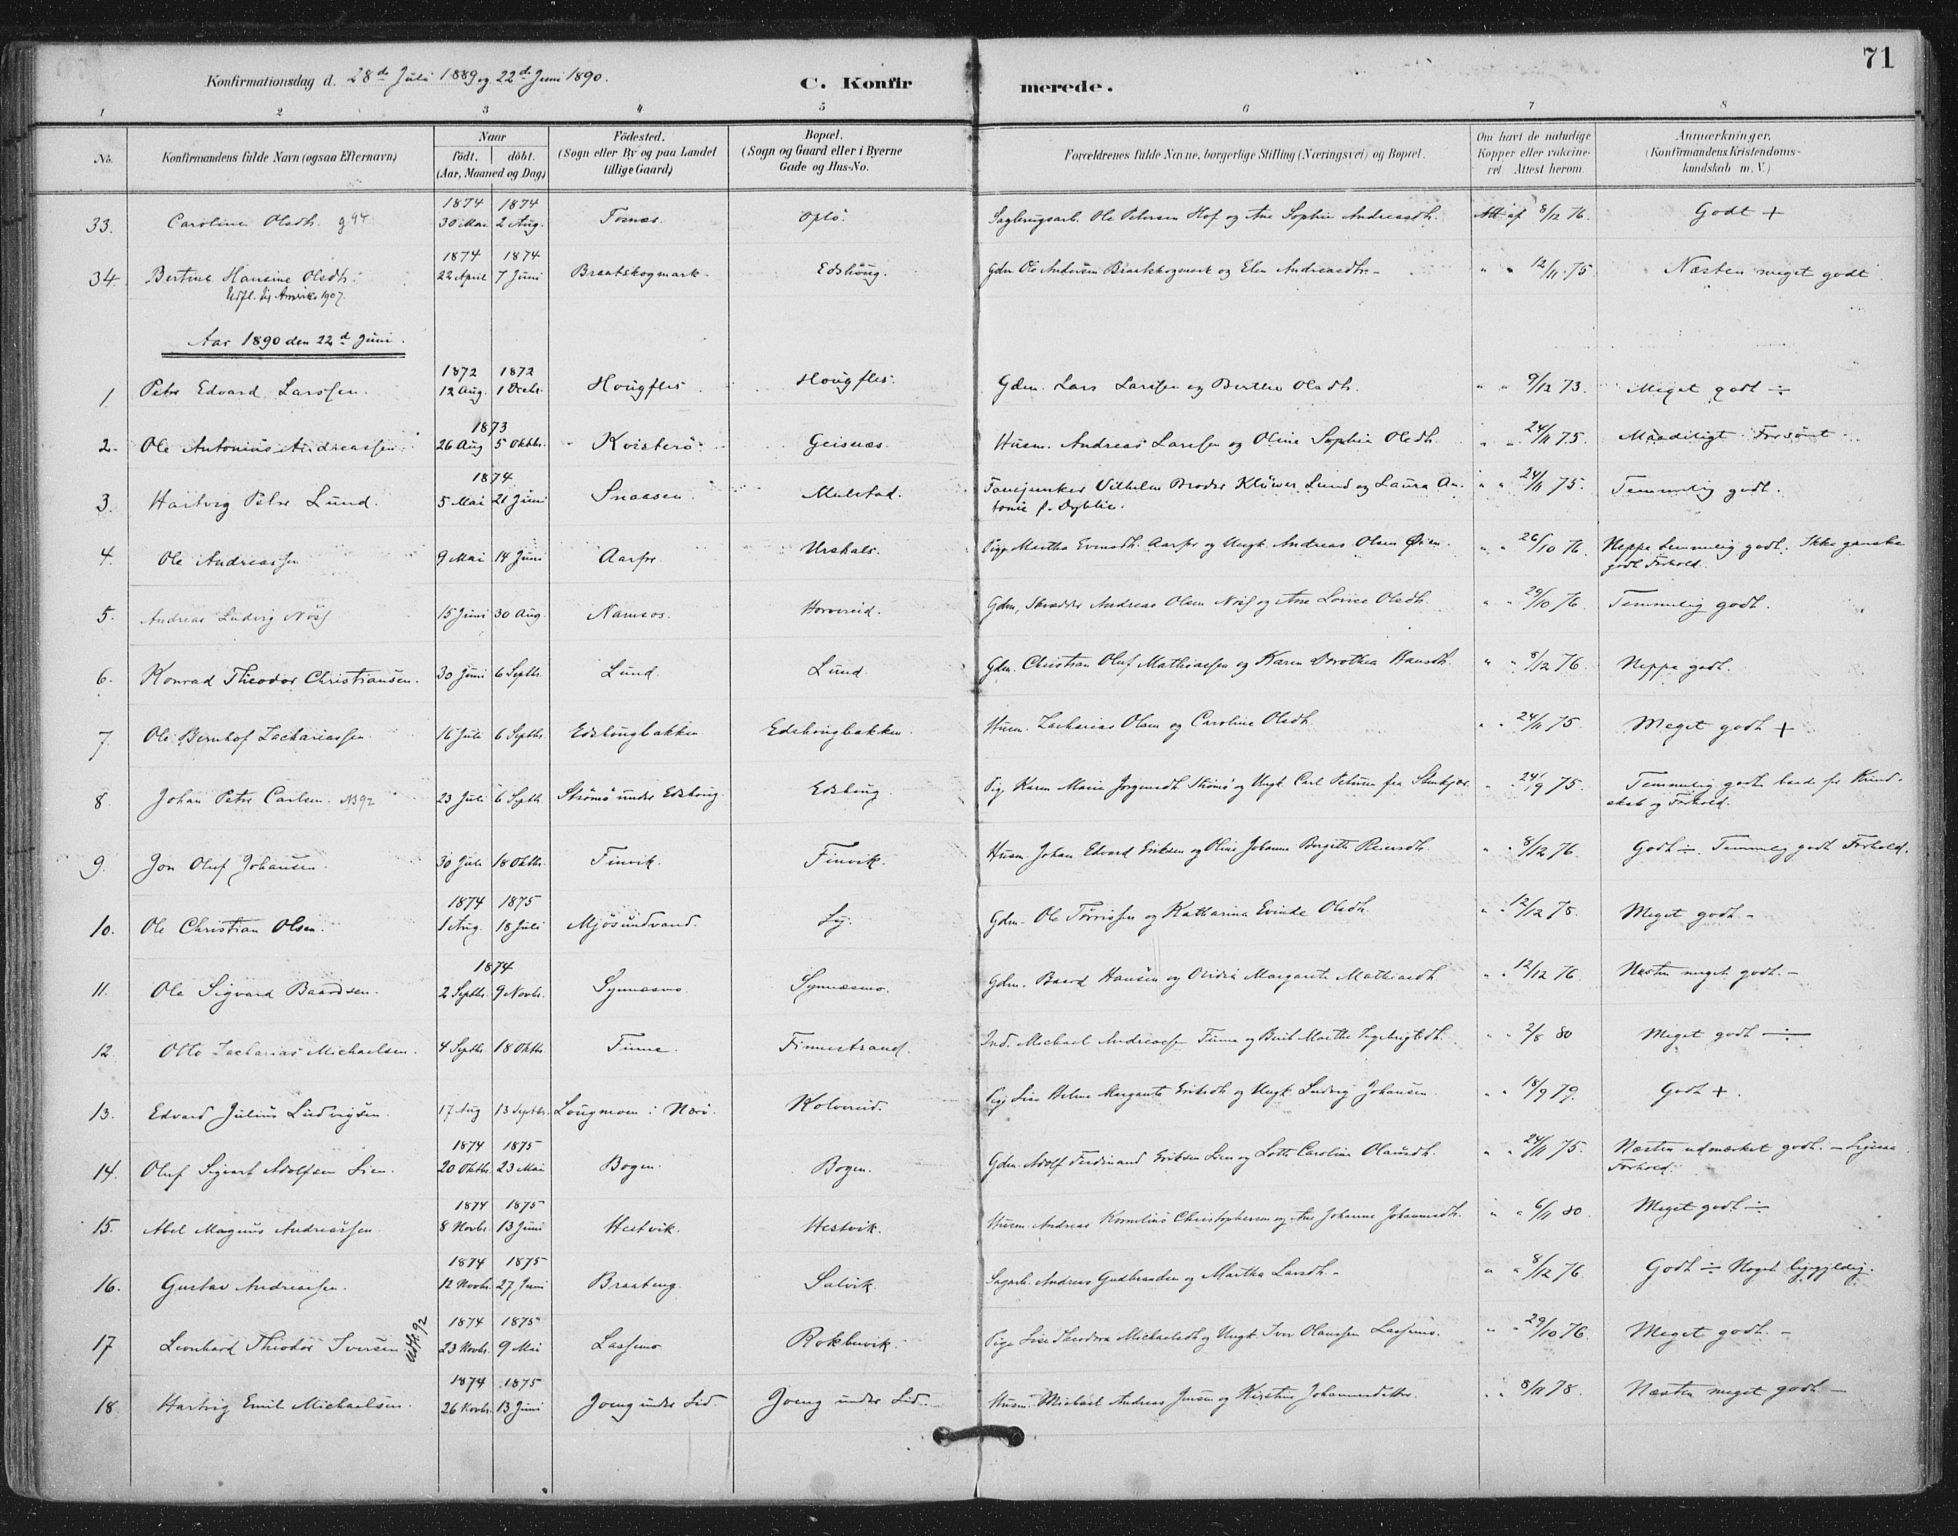 71
Konfirmationsdag d. 28de Juli 1889 og 22de Juni 1890.
C. Konfirmerede.
1 2 3 4 5 6 7 8
No.
Konfirmandens fulde Navn (ogsaa Efternavn)
Naar
födt. döbt.
(Aar, Maaned og Dag)
Födested.
(Sogn eller By og paa Landet
tillige Gaard)
Bopæl.
(Sogn og Gaard eller i Byerne
Gade og Hus-No.
Forældrenes fulde Navne, borgerlige Stilling (Næringsvei) og Bopæl.
Om havt de naturlige
Kopper eller vakcine-
ret Attest herom.
Anmærkninger.
(Konfirmandens Kristendoms-
kundskab m. V.)
1874 1874
33. Caroline Olsdtr. 30 Mai 2 Aug. Fosnæs Oplö. Sagbrugsarb. Ole Petersen Hof og Ane Sophie Andreasdtr. Att af 8/12 76. Godt +
1874 1874
34. Bertine Hansine Olsdtr. 22 April 7 Juni Braatskogmark Edshöug. Gdm. Ole Andersen Braatskogmark og Elen Andreasdtr. " " 12/11 75. Næsten meget godt
Udfl. til Amerika 1907.
Aar 1890 den 22d Juni.
1872 1872
1. Peter Edvard Larssen. 12 Aug. 1 Decbr. Hougfles Hougfles. Gdm. Lars Larssen og Berthe Olsdtr. " " 9/12 73. Meget godt ÷
1873
2. Ole Antonius Andreassen. 26 Aug 5 Oktbr. Kvisterö Geisnæs Husm. Andreas Larssen og Oline Sophie Olsdtr. " " 24/11 75. Maadeligt. Forsömt.
1874
3. Hartvig Peter Lund. 5 Mai 21 Juni Snaasen Mulstad. Fanejunker Vilhelm Broder Klüwer Lund og Laura An-
tonie f. Dyblie. " " 24/11 75. Temmelig godt.
4. Ole Andreassen 9 Mai 14 Juni Aarfor Pige Martha Evensdtr. Aarfor og Ungk. Andreas Olsen Öien. " " 26/10 76. Neppe temmelig godt. Ikke ganske
godt Forhold.
5. Andreas Ludvig 15 Juni 30 Aug. Namsos. Horvereid. Gdm, Skrædder Andreas Olsen og Ane Lovise Olsdtr. " " 29/10 76. Temmelig godt.
6. Konrad Theodor Christiansen. 30 Juni 6 Septbr. Lund. Lund. Gdm. Christian Oluf Mathiassen og Karen Dorothea Hansdtr. " " 8/12 76. Neppe godt.
7. Ole Bernhof Zachariassen. 16 Juli 6 Septbr. Edshougbakken Edshougbakken. Husm. Zacharias Olsen og Caroline Olsdtr. " " 24/11 75. Meget godt +
8. Johan Peter Carlsen. 23 Juli 6 Septbr. Strömö under Edshoug. Edshoug. Pig. Karen Marie Jörgensdtr. Strömö og Ungk. Carl Petersen fra Stenkjær. " " 24/9 75. Temmelig godt baade for Kund-
skab og Forhold.
9. Jon Oluf Johansen. 30 Juli 18 Oktbr. Finvik. Finvik. Husm. Johan Edvard Eriksen og Oline Johanna Bergitte Reiersdtr. " " 8/12 76. Godt ÷. Temmelig godt Forhold.
1874 1875
10. Ole Christian Olsen. 1 Aug. 18 Juli Mjösundvand. Gdm. Ole Törrissen og Katharina Evinde Olsdtr. " " 12/12 78. Meget godt. -
1874
11. Ole Sigvard Baardsen. 2 Septbr. 9 Novbr. Synnæsmo Synnæsmo. Gdm. Baard Hansen og Margarete Mathiasdtr. " " 12/12 76 Næsten meget godt. -
12. Otto Zacharias Michaelsen. 4 Septbr. 18 Oktbr. Finne. Finnestrand. Ind. Michael Andreassen Finne og Berit Marthe Ingebrigtsdtr. " " 2/8 80 Meget godt ÷
13. Edvard Julius Ludvigsen. 17 Aug 13 Septbr. Lougmoen i Nærö. Kolvereid. Margarete Eriksdtr og Ungk. Ludvig Johansen. " " 18/9 79. Godt +.
1874 1875
14. Oluf Sigvart Adolfsen Lien. 20 Oktbr. 23 Mai Bogen. Bogen. Gdm. Adolf Ferdinand Eriksen Lien og Caroline Olausdtr. " " 24/11 75. Næsten udmærket godt. - Ligesaa
Forhold.
1874 1875
15. Abel Magnus Andreassen. 8 Novbr. 13 Juni Hestvik. Hestvik. Husm. Andreas Kornelius Christophersen og Ane Johanne Johannesdtr. " " 6/11 80. Meget godt ÷
1874 1875
16. Gustav Andreassen. 12 Novbr. 27 Juni Braateng. Salvik. Sagarb. Andreas Gudbrandsen og Martha Larsdtr. - " " 8/12 76. Godt ÷ Noget ligegyldig.
1874 1875
17 Leonhard Theodor Iversen 23 Novbr. 9 Mai Lassemo Pige Lise Theodora Michaelsdtr og Ungk Iver Olaussen Lassemo. " " 29/10 76. Meget godt. -
1874 1875
18. Hartvig Emil Michaelsen. 26 Novbr. 13 Juni Joeng under Lid Joeng under Lid. Husm. Michael Andreas Jensen og Kirstine Johannesdatter. " " 8/11 78. Næsten meget godt. -